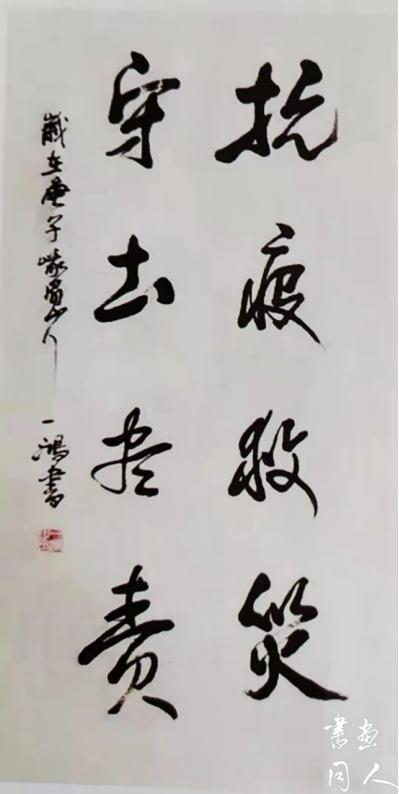 抗疫救災
守土尽责
歲在庚子峨眉山人
一鴻書
書畫
同人